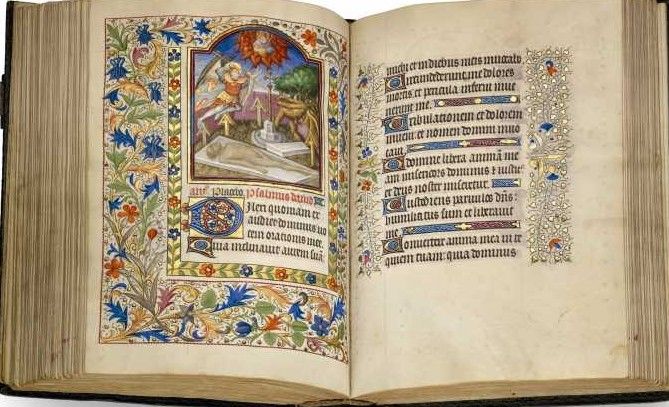 ant. Placebo. Psalmus david
Dilexi quoniam ex
audiet dominus uo
cem orationis mee
Quia inclinauit aurem suā
michi et in diebus meis inuocabo
Circundederunt me dolores
mortis et pericula inferni inue
nerunt me.
Tribulationem et dolorem
inueni et nomen domini inuo
caui
O domine libera animā me
am misericors dominus et iustus
et deus noster miseretur.
Custodiens paruulos dn̄s
humiliatus sum et liberauit
me
Conuertere anima mea in re
quiem tuam: quia dominus